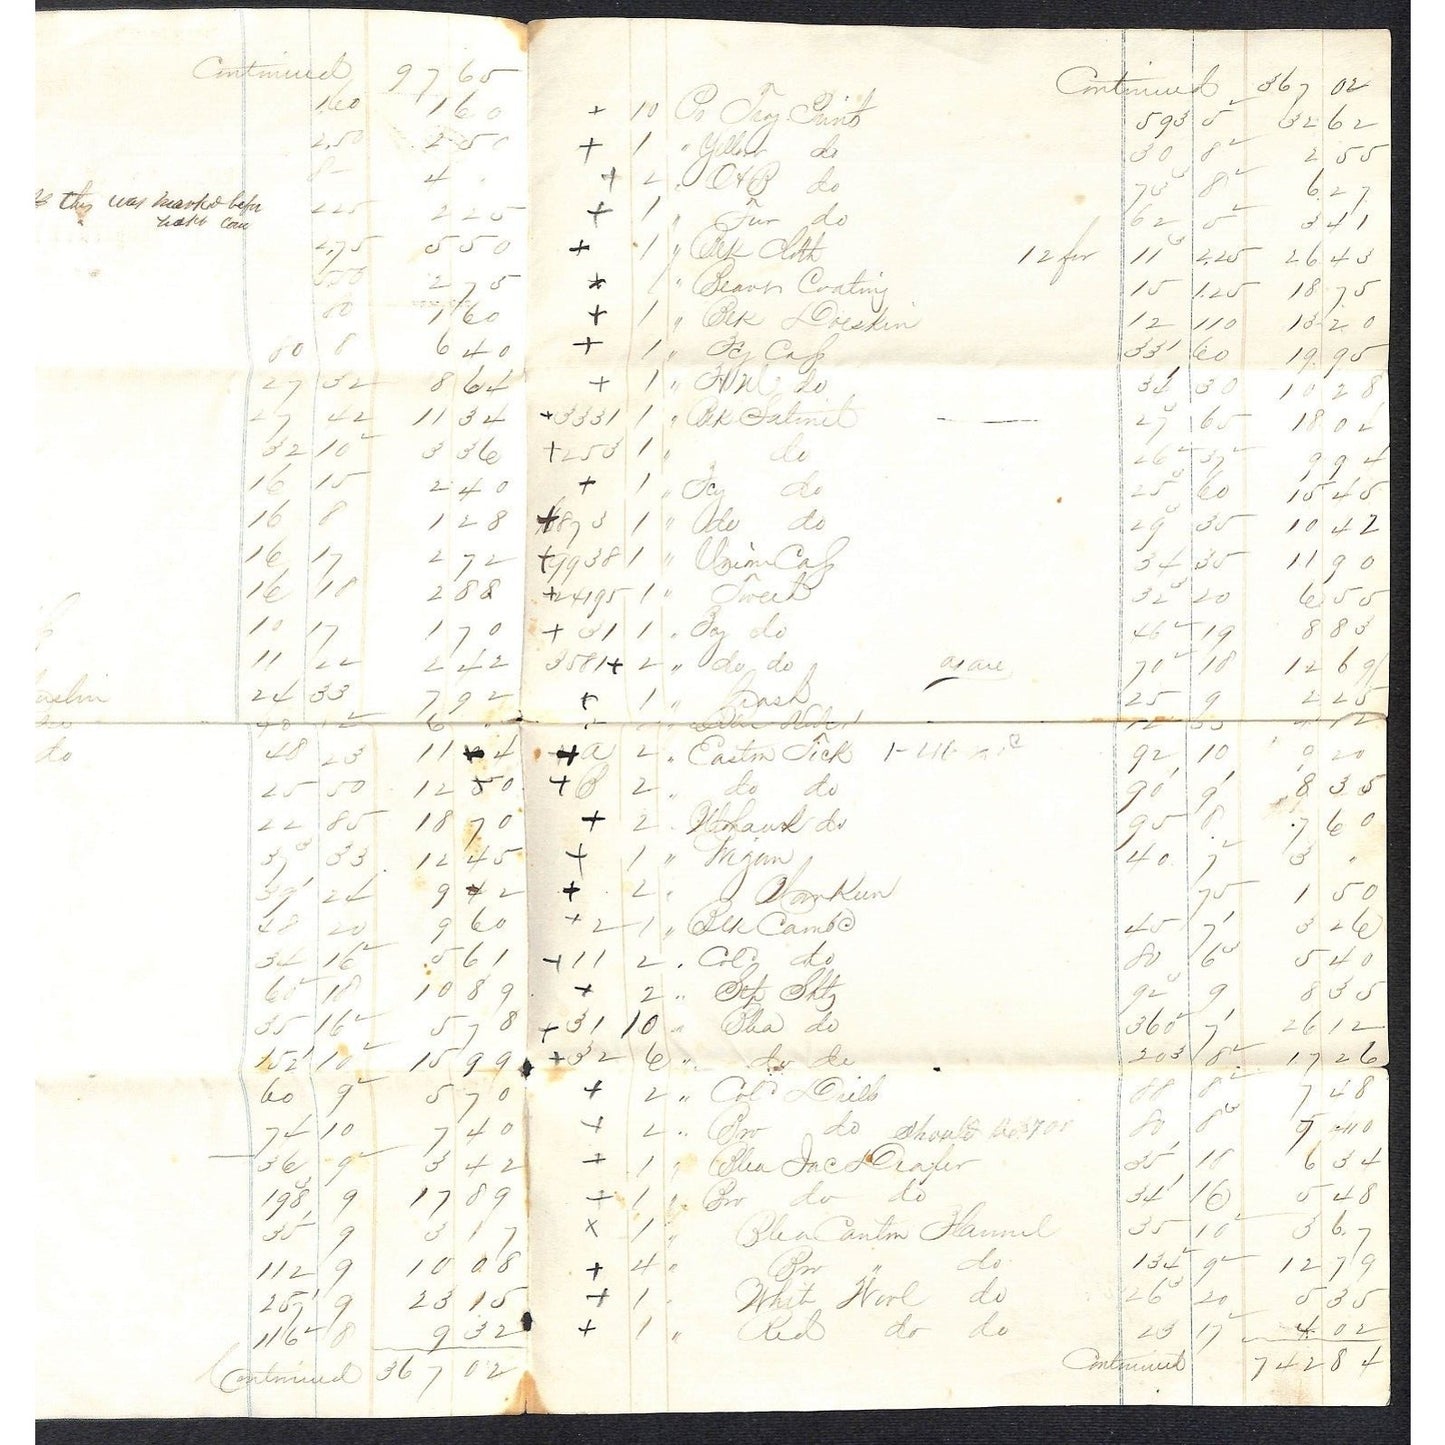 Continued 97 65
1.60 1 60
2.50 2 50
8- 4 .
this was marked before
225 2 25
2.75 5 50
5.50 2 75
80 1 60
80 8 6 40
27 32 8 64
27 42 11 34
32 10² 3 36
16 15 2 40
16 8 1 28
16 17 2 72
16 18 2 88
10 17 1 70
11 22 2 42
24 33 7 92
48 12² 6 "
do 48 23 11 04
25 50 12 50
22 85 18 70
37³ 33 12 45
39¹ 24 9 42
48 20 9 60
34 16² 5 61
60² 18 10 89
35 16² 5 78
152¹ 10² 15 99
60 9² 5 70
74 10 7 40
36 9² 3 42
198³ 9 17 89
35¹ 9 3 17
112 9 10 08
257¹ 9 23 15
116² 8 9 32
Continued 367 02
Continued 367 02
+ 10 Ps Fray Prints 593 5² 32 62
+ 1 " Yellow do 30 8² 2 55
+ 2 " do 73³ 8² 6 27
+ 1 " Fur do 62 5² 3 41
+ 1 " Blk Cloth 12 for 11³ 2.25 26 43
+ 1 " Beaver Coating 15 1.25 18 75
+ 1 " Blk Doeskin 12 110 13 20
+ 1 " Fcy Cass 33¹ 60 19 95
+ 1 " do 34¹ 30 10 28
+3331 1 " Blk Satinet 27³ 65 18 04
+253 1 " do 26² 37² 9 94
+ 1 " Fcy do 25³ 60 15 45
1 " do do 29³ 35 10 42
+9938 1 " Union Cass 34 35 11 90
+24195 1 " Tweed 32³ 20 6 55
+ 311 1 " Fcy do 46² 19 8 83
3581+ 2 " do do 70² 18 12 69
+ 1 " 25 9 2 25
+ A 2 " Eastn Tick 92 10 9 20
+ B 2 " do do 90¹ 9¹ 8 35
+ 2 " Mohawk do 95 8 7 60
+ 1 " 40 7² 3 "
+ 2 " 75 1 50
+ 2 1 " Blk Cambc 45 7¹ 3 26
+11 2 " Cold do 80 6³ 5 40
+ 2 " Stp Shtg 92³ 9 8 35
+31 10 " Blea do 360² 7¹ 26 12
+32 6 " do do 203 8² 17 26
+ 2 " Cold Drills 88 8² 7 48
+ 2 " Bro do should be 80 8³
+ 1 " Blea Jac Diaper 35¹ 18 6 34
+ 1 " Bro do do 34¹ 16 5 48
x 1 " Blea Canton Flannel 35 10² 3 67
+ 4 " Bro " do 134² 9² 12 79
+ 1 " White Wool do 26³ 20 5 35
+ 1 " Red do do 23 17² 4 02
Continued 742 84